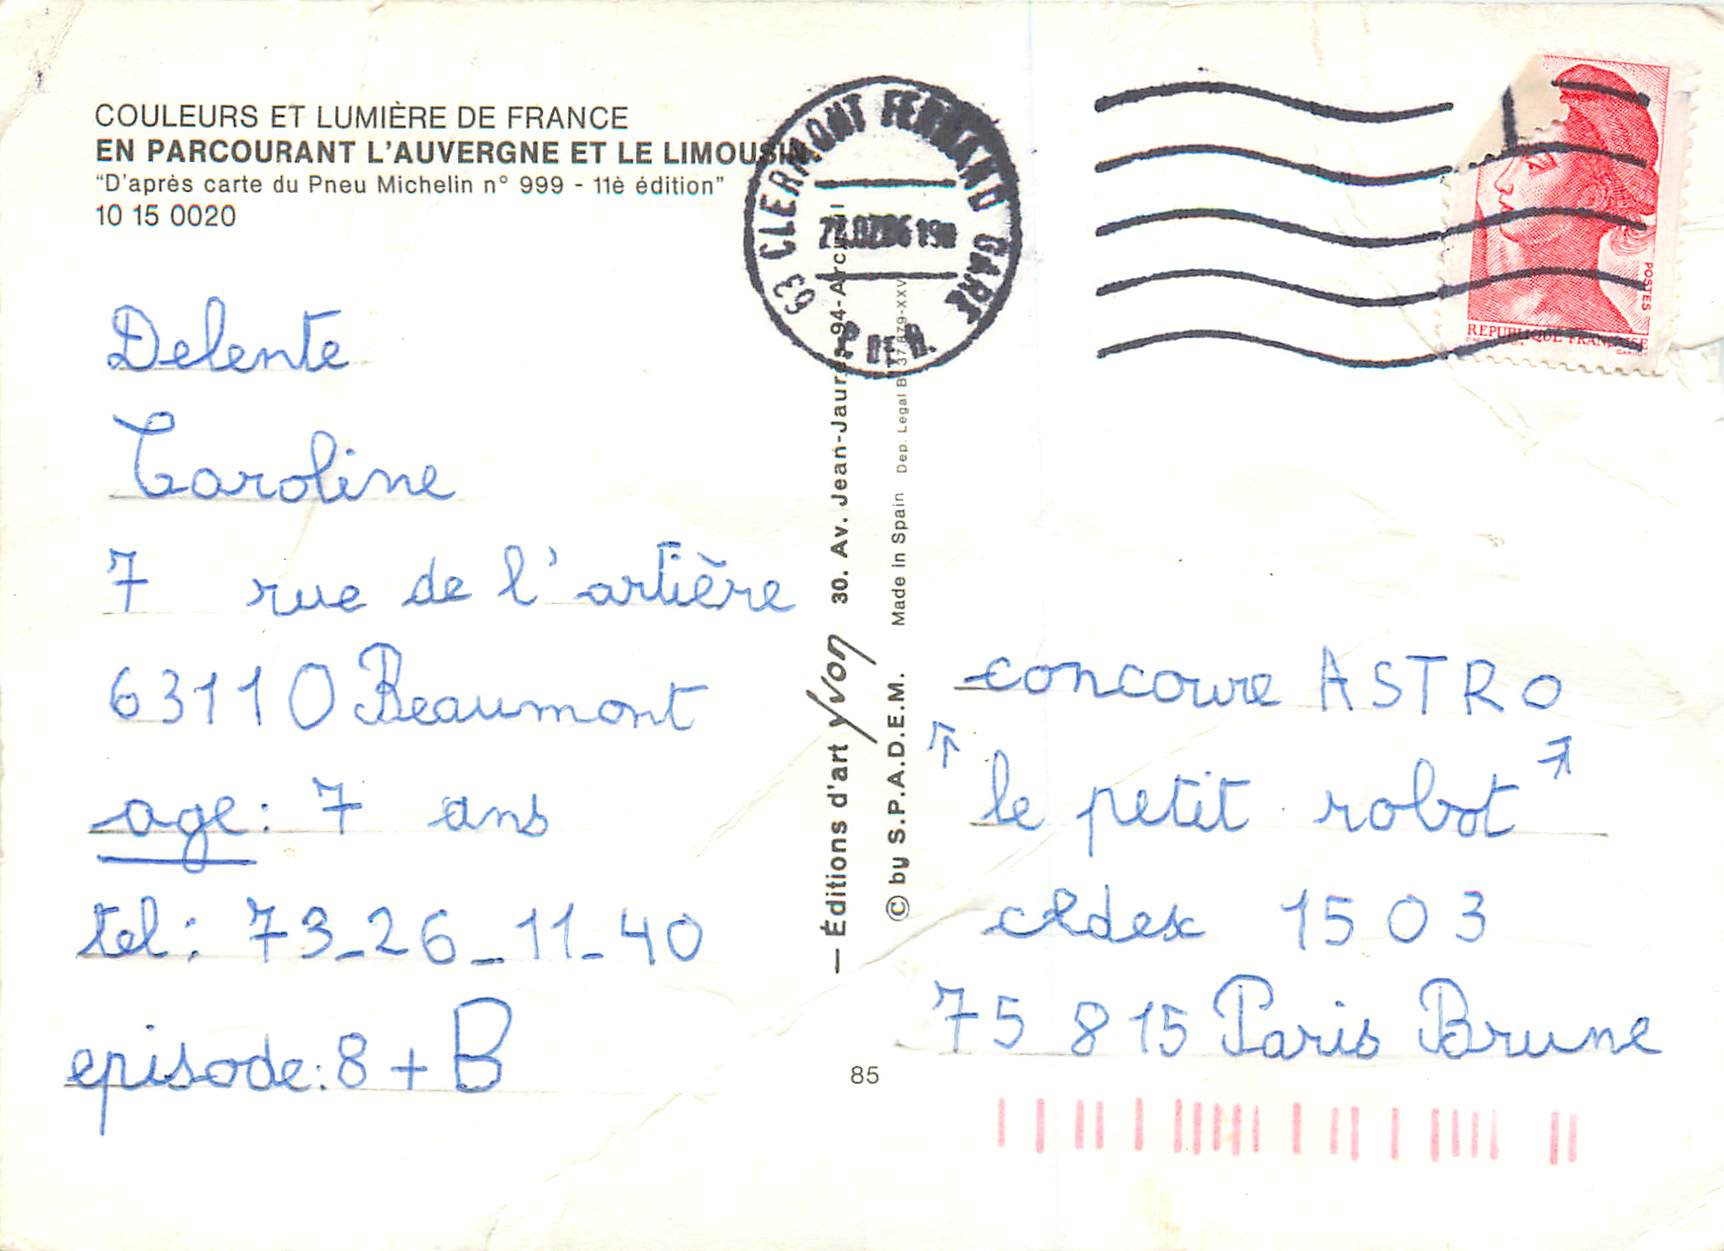 COULEURS ET LUMIÈRE DE FRANCE
EN PARCOURANT L'AUVERGNE ET LE LIMOUSIN
"D'après carte du Pneu Michelin n° 999 - 11è édition"
10 15 0020
63 CLERMONT FERRAND GARE
P. DE D.
POSTES
REPUBLIQUE FRANÇAISE
Delente
Caroline
7 rue de l'artière
63110 Beaumont
age: 7 ans
tel: 73_26_11_40
episode: 8 + B
— Éditions d'art yvon 30. Av. Jean-Jaurès-94-Arc
© by S.P.A.D.E.M. Made in Spain Dep. Legal B 37.879-XXV
85
concoure ASTRO
le petit robot
cedex 1503
75 815 Paris Brune